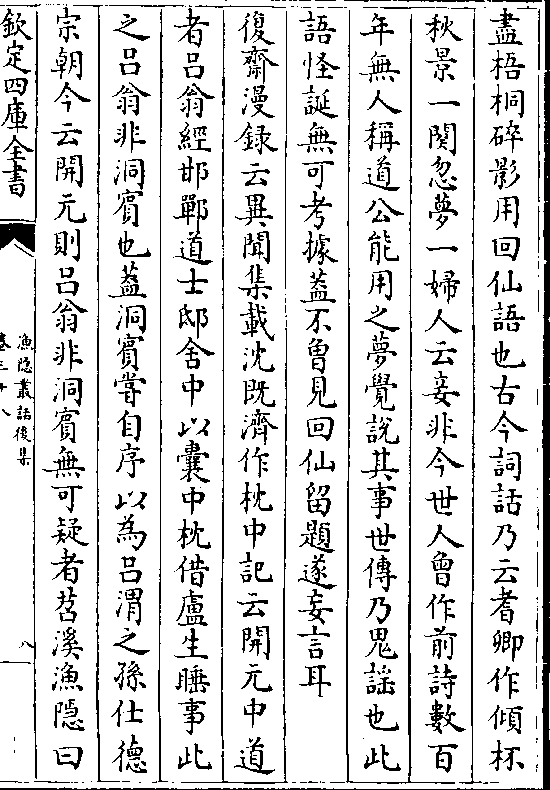 盡梧桐碎影用回仙語也古今詞話乃云耆卿作傾杯
秋景一闋忽夢一婦人云妾非今世人曾作前詩數百
年無人稱道公能用之夢覺說其事世傳乃鬼謡也此
語怪誕無可考據蓋不曾見回仙留題遂妄言耳
復齋漫録云異聞集載沈既濟作枕中記云開元中道
者吕翁經邯鄲道士邸舍中以囊中枕借盧生睡事此
之吕翁非洞賓也蓋洞賓嘗自序以為吕渭之孫仕德
宗朝今云開元則吕翁非洞賓無可疑者苕溪漁隠曰
欽定四庫全書
漁隠叢話後集
卷三十八
八